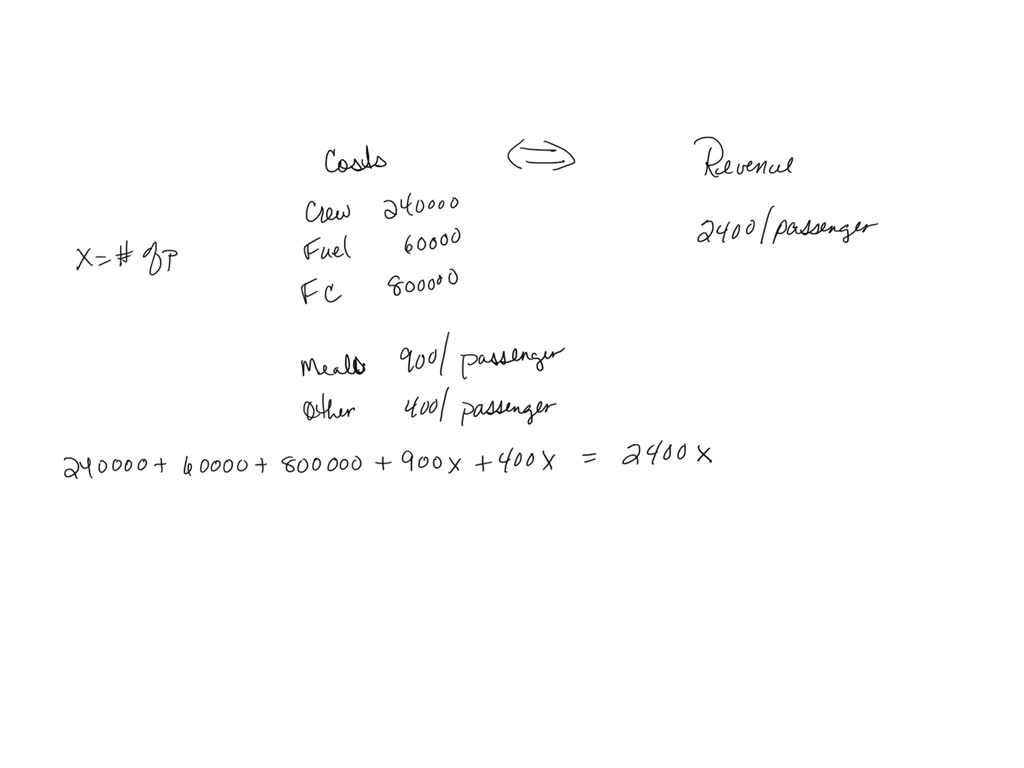 Costs ⟺ Revenue
Crew 240000
2400/passenger
Fuel 60000
X = # of P
FC 800000
Meals 900/passenger
Other 400/passenger
240000 + 60000 + 800000 + 900x + 400x = 2400x